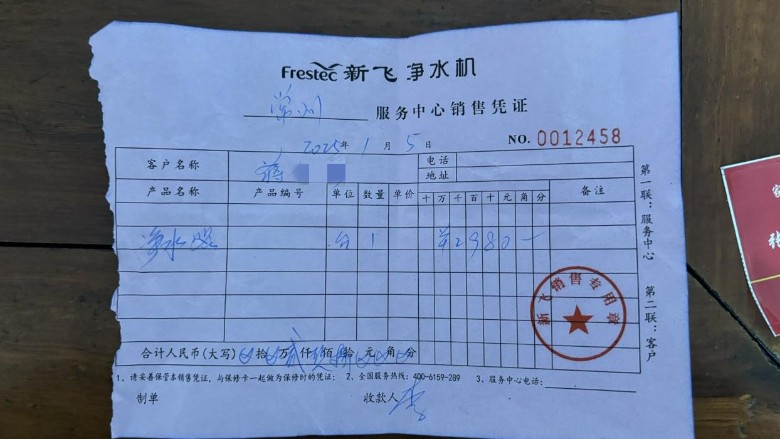 Frestec 新飞 净水机
常州 服务中心销售凭证
2025年1月5日 NO. 0012458
客户名称 蒋 电话
地址
产品名称 产品编号 单位 数量 单价 十 万 千 百 十 元 角 分 备注
净水器 台 1 ¥2980-
合计人民币(大写) 拾 万 贰 仟 玖 佰 捌 拾 元 角 分
1、请妥善保管本销售凭证,与保修卡一起做为保修时的凭证; 2、全国服务热线:400-6159-289 3、服务中心电话:
制单 收款人 李
第一联:服务中心 第二联:客户
新飞销售专用章